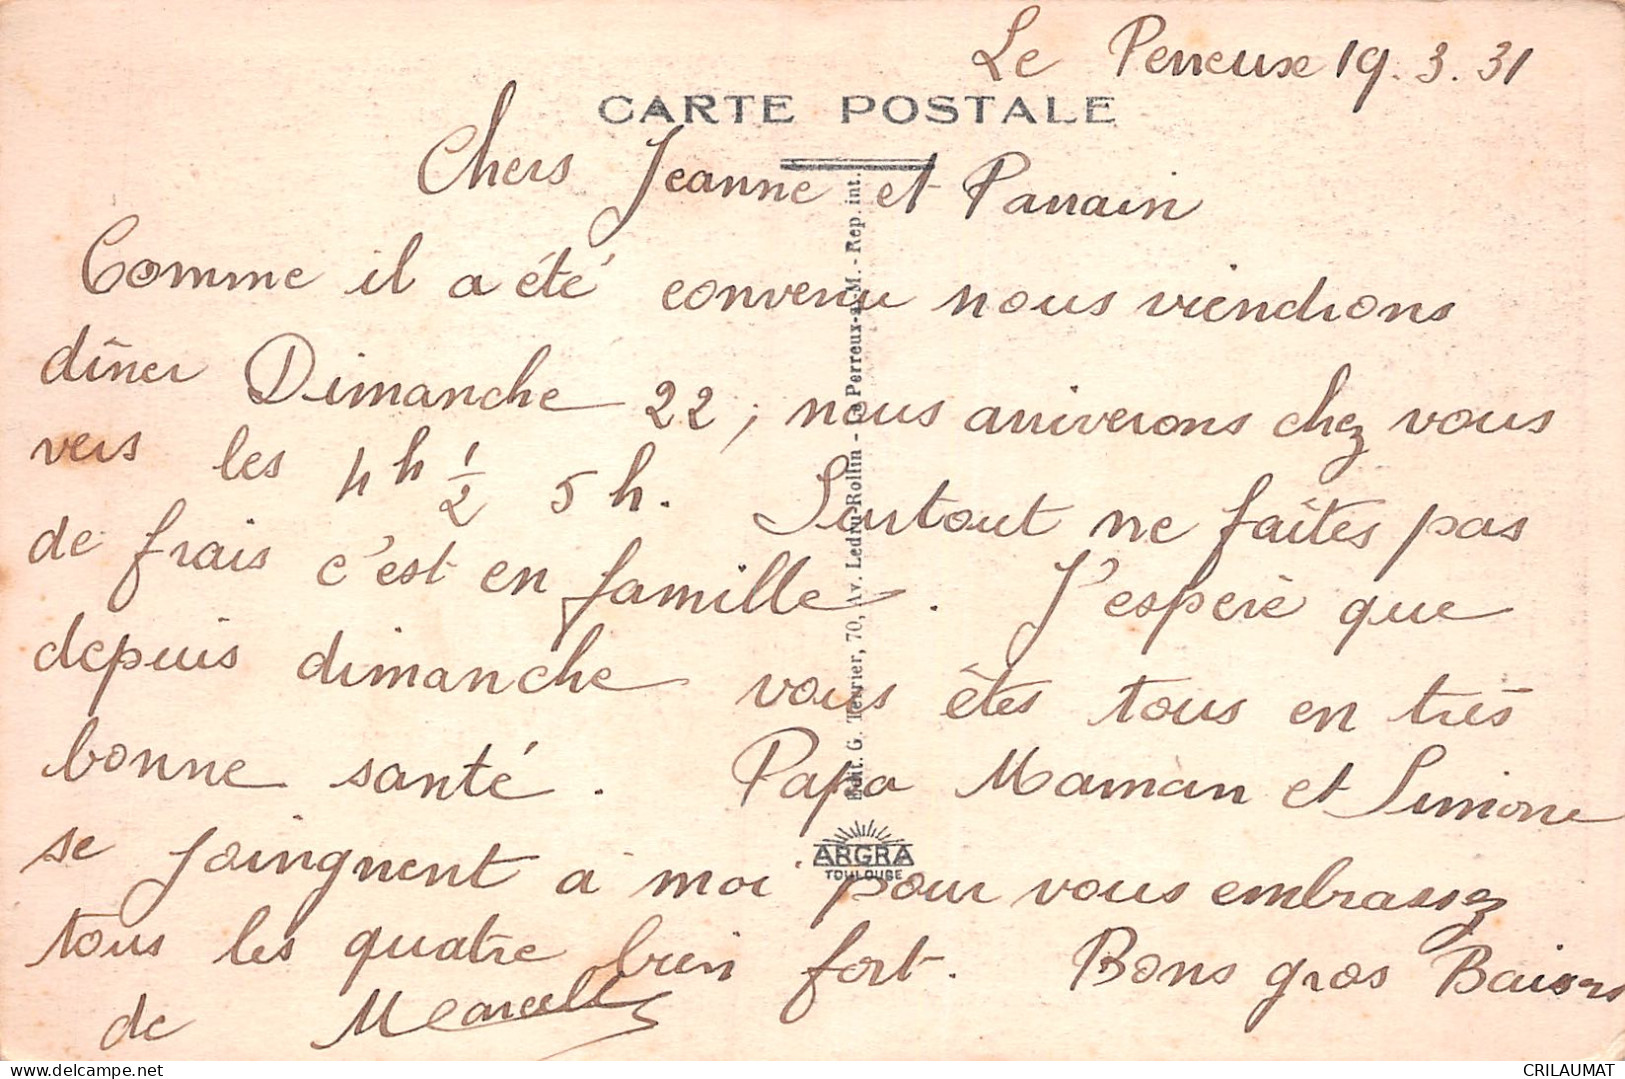 Le Perreux 19.3.31
CARTE POSTALE
Chers Jeanne et Parrain
Comme il a été convenu nous viendrons
dîner Dimanche 22, nous arriverons chez vous
vers les 4h 1/2 5h. Surtout ne faîtes pas
de frais c'est en famille. J'espère que
depuis dimanche vous êtes tous en très
bonne santé. Papa Maman et Simone
se joingnent à moi pour vous embrassez
tous les quatre bien fort. Bons gros Baisers
de Marcelle
Edit. G. Terrier, 70, Av. Ledru-Rollin - Le Perreux-s-M. - Rep. int.
ARGRA
TOULOUSE
delcampe.net
CRILAUMAT